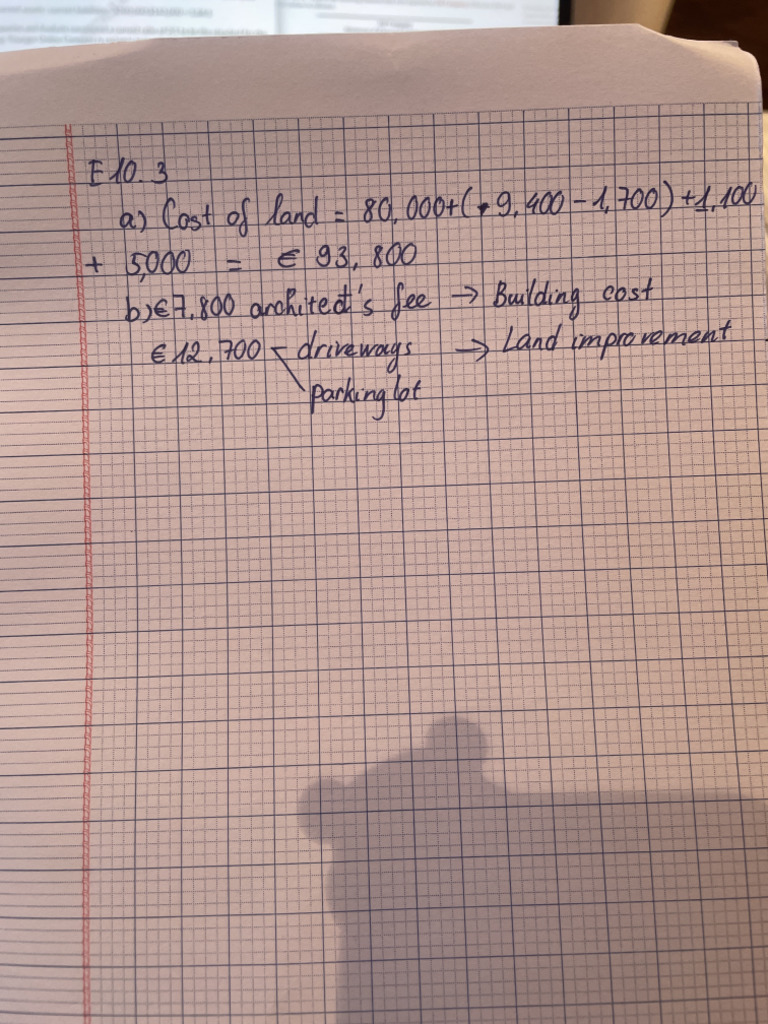 E10.3
a) Cost of land = 80,000+(9,400-1,700)+1,100
+ 5,000 = € 93,800
b) €7,800 architect's fee → Building cost
€12,700 - driveways → Land improvement
parking lot